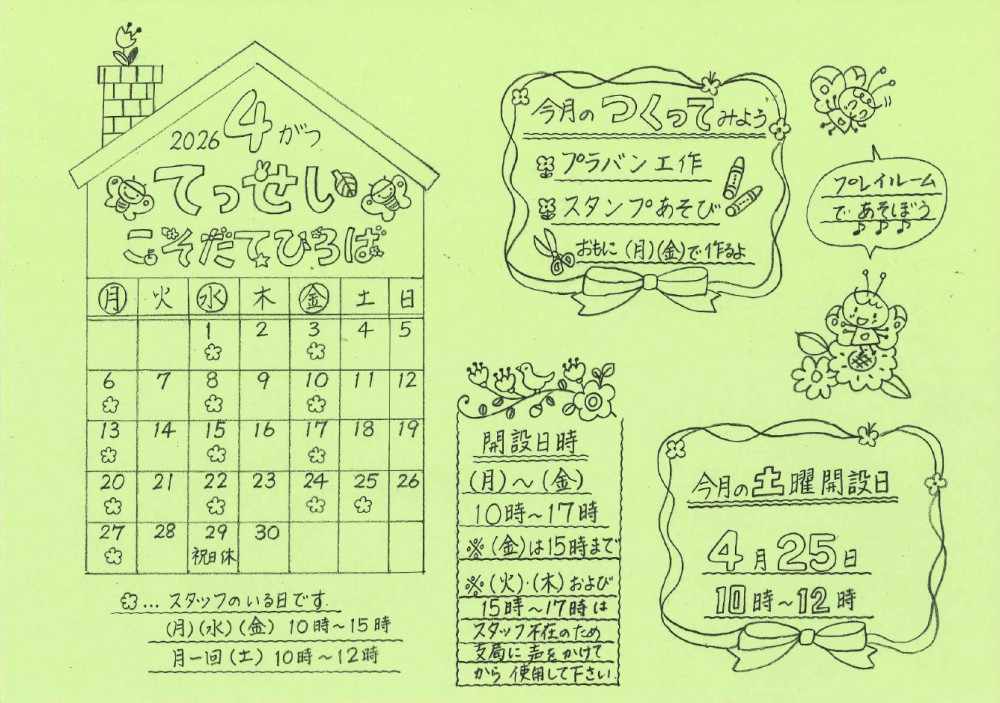 2026 4がつ
てっせい
こそだてひろば
月 火 水 木 金 土 日
1 2 3 4 5
6 7 8 9 10 11 12
13 14 15 16 17 18 19
20 21 22 23 24 25 26
27 28 29 30
祝日休
…スタッフのいる日です.
(月)(水)(金) 10時～15時
月一回(土) 10時～12時
今月のつくってみよう
プラバン工作
スタンプあそび
おもに(月)(金)で作るよ
プレイルーム
で あそぼう
♪♪♪
開設日時
(月)～(金)
10時～17時
※(金)は15時まで
※(火)・(木)および
15時～17時は
スタッフ不在のため
支局に声をかけて
から使用して下さい.
今月の土曜開設日
4月25日
10時～12時